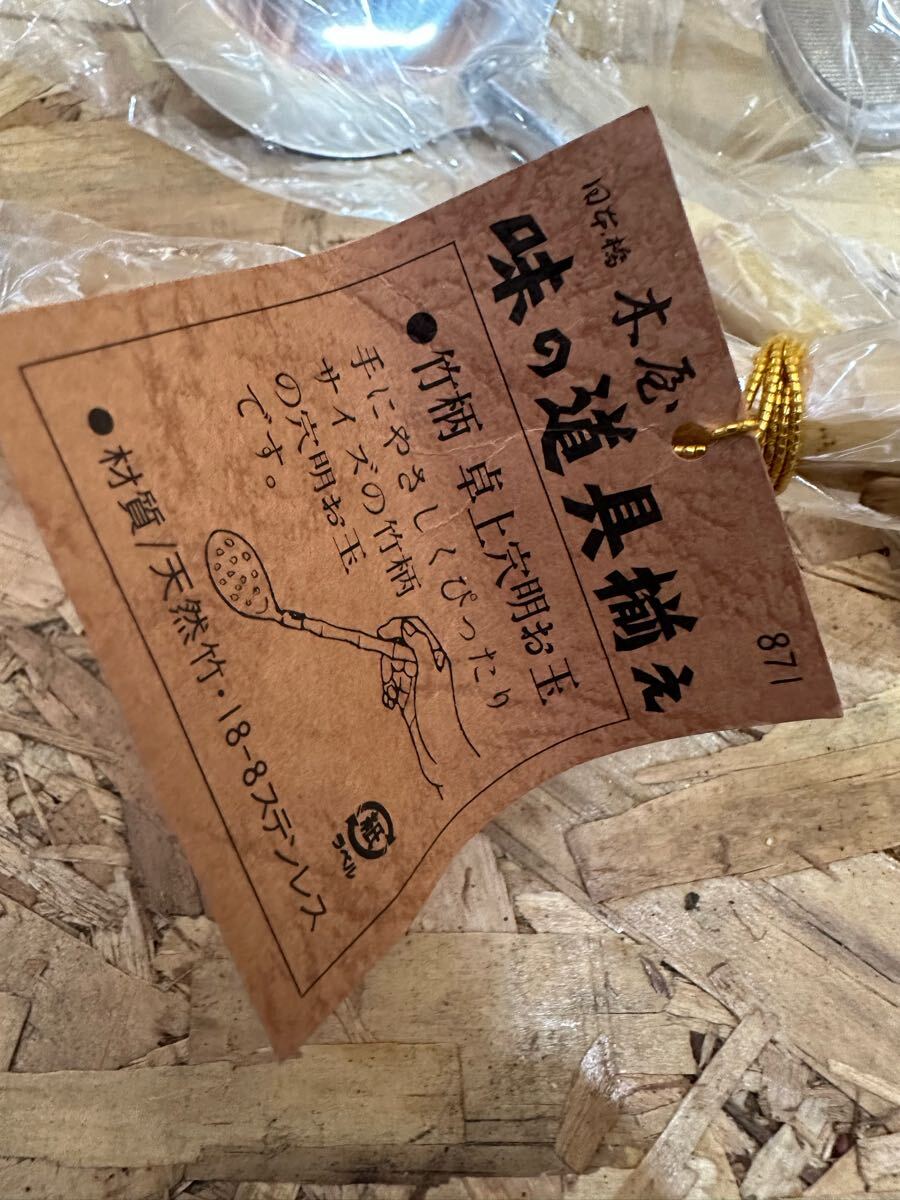 日本橋
木屋
味の道具揃え
871
●竹柄 卓上穴明お玉
手にやさしくぴったり
サイズの竹柄
の穴明お玉
です。
●材質/天然竹・18-8ステンレス
紙
ラベル